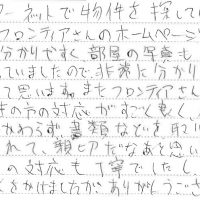 ーネットで物件を探してい
フロンティアさんのホームページ
分かりやすく、部屋の写真も
っていましたので、非常に分かり
て思います。またフロンティアさん
きの方の対応がすごく良く、
かわらず、書類などを取り
れて、親切だなあと思い
の対応も丁寧でした
くをかけましたが、ありがとうござ